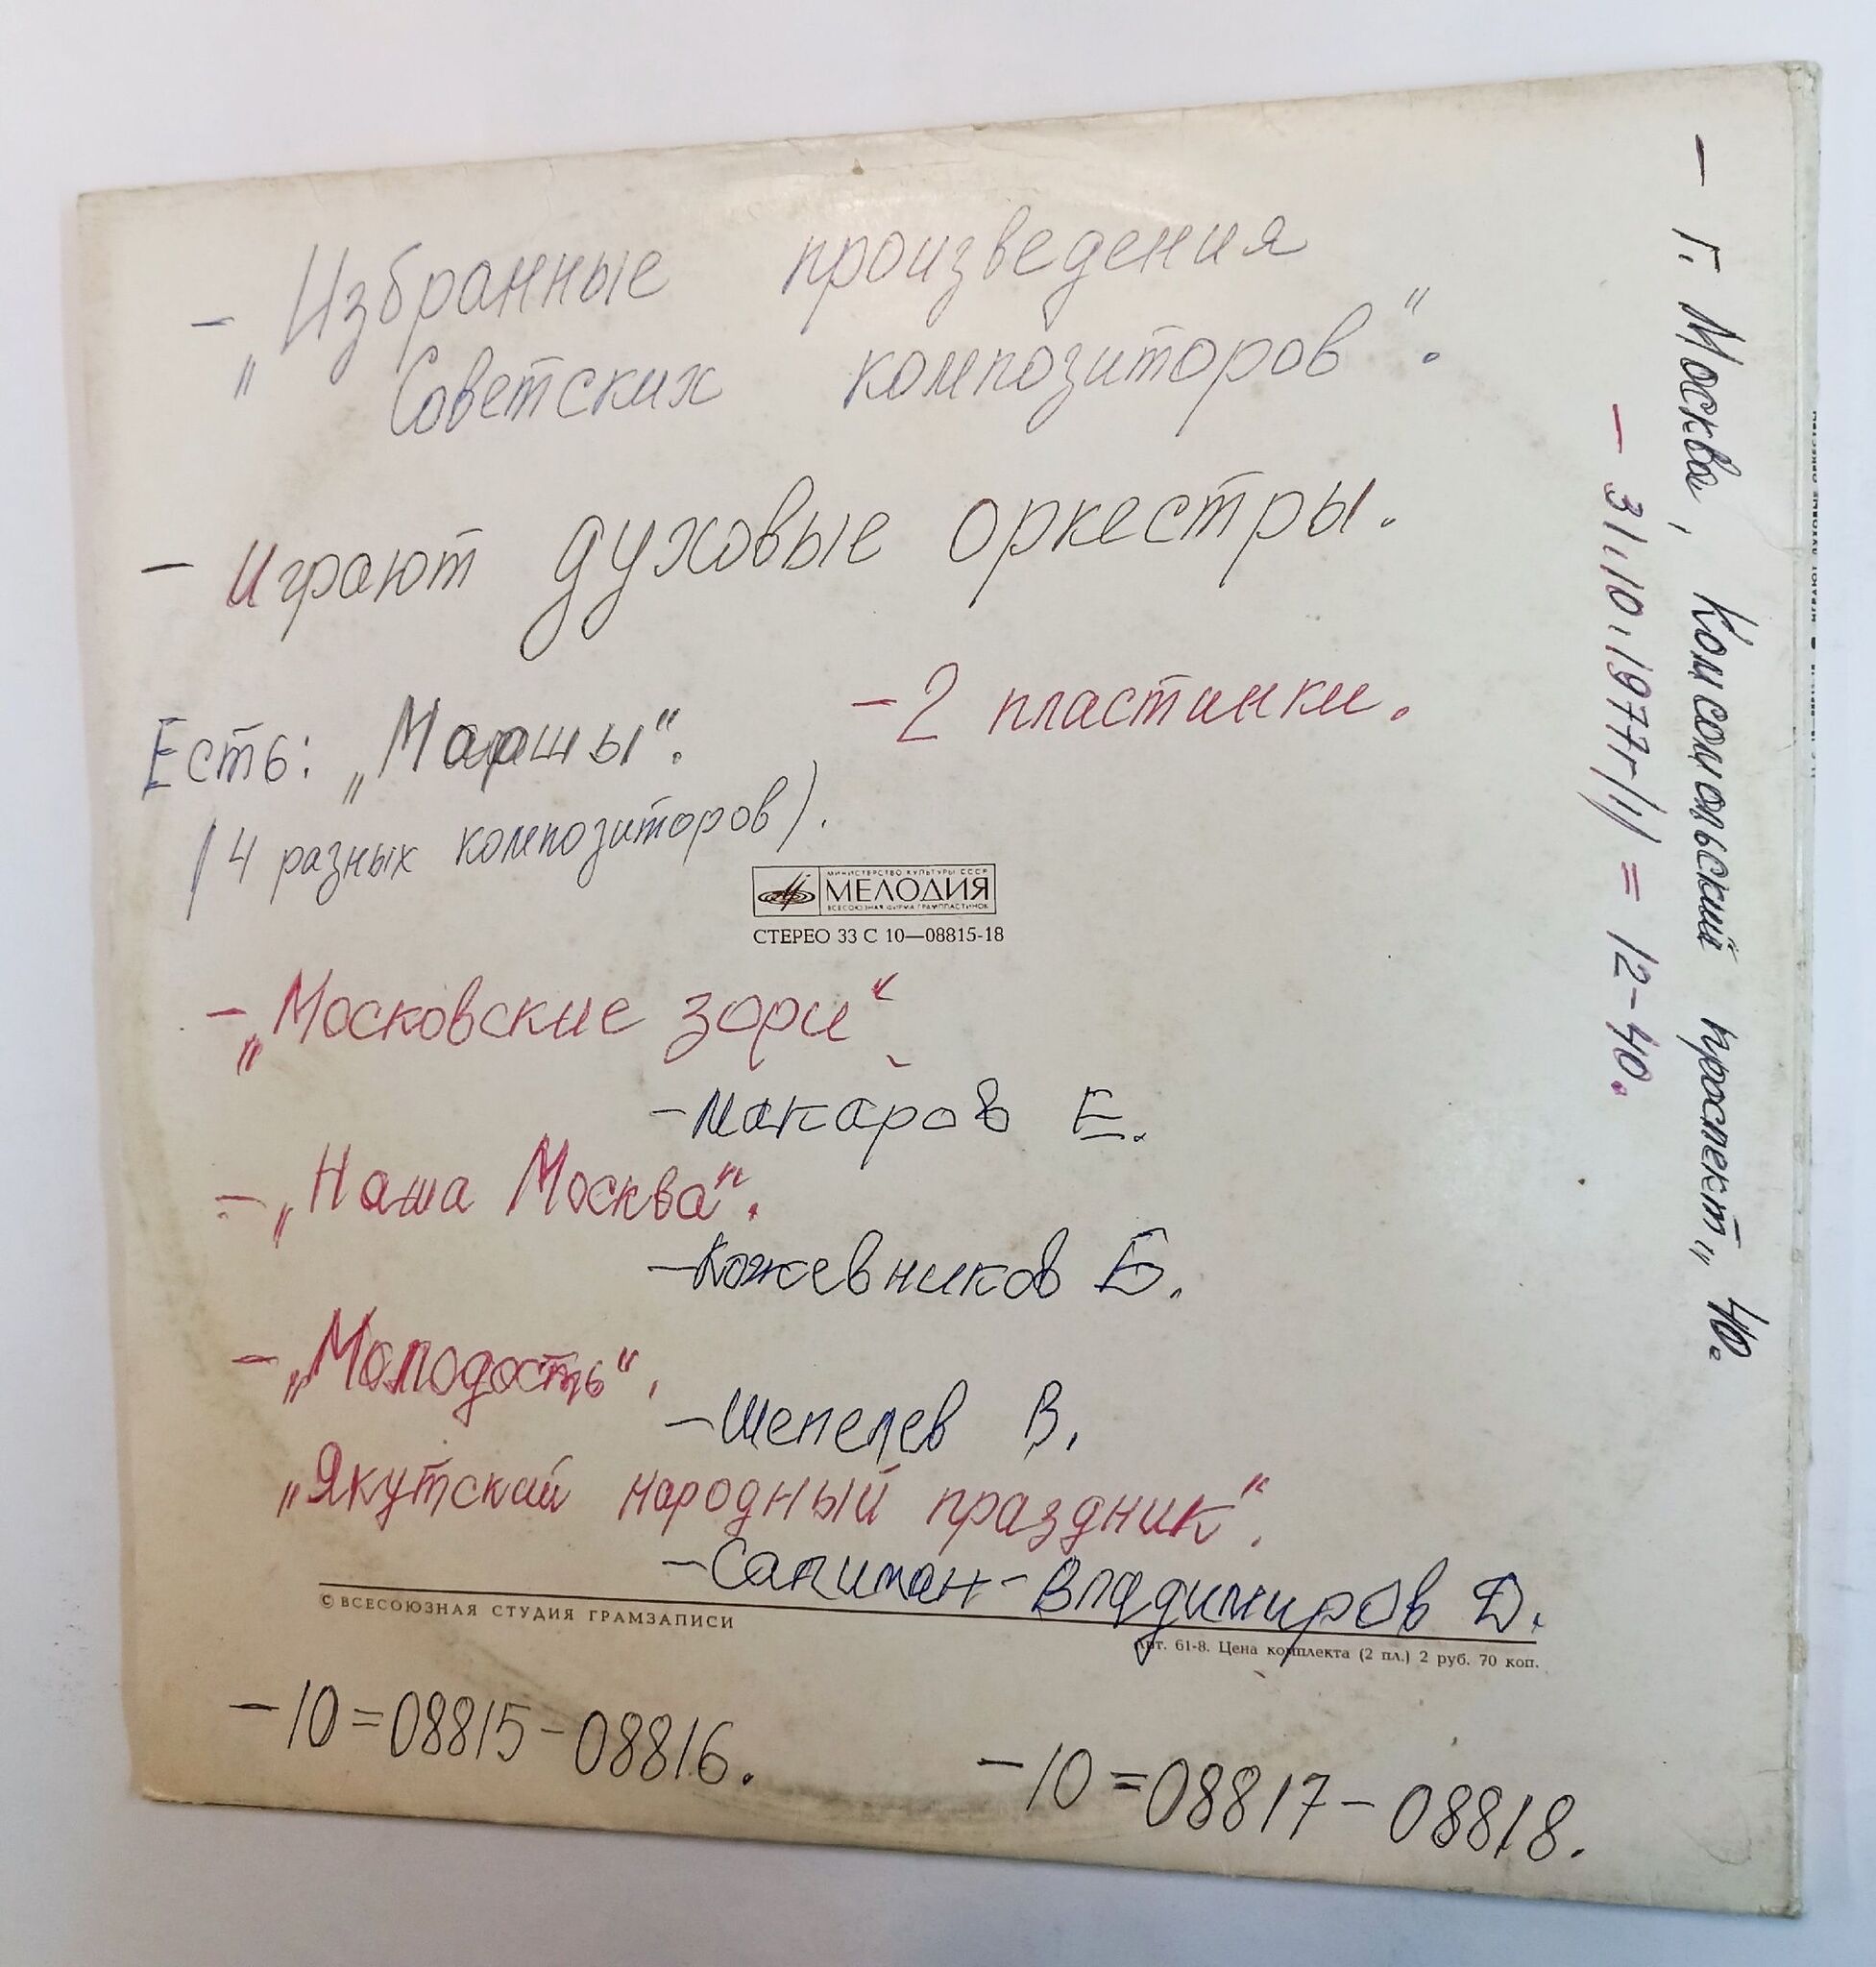 – „Избранные произведения
Советских композиторов“.
– Играют духовые оркестры.
– 2 пластинки.
Есть: „Марши ы“.
(4 разных композиторов).
МИНИСТЕРСТВО КУЛЬТУРЫ СССР
МЕЛОДИЯ
ВСЕСОЮЗНАЯ ФИРМА ГРАМПЛАСТИНОК
СТЕРЕО 33 С 10—08815-18
– „Московские зори“
– Макаров Е.
– „Наша Москва“.
– Кожевников Б.
– „Молодость“.
– Шепелев В.
„Якутский народный праздник“.
– Салиман-Владимиров Д.
© ВСЕСОЮЗНАЯ СТУДИЯ ГРАМЗАПИСИ
Арт. 61-8. Цена комплекта (2 пл.) 2 руб. 70 коп.
– 10=08815–08816.
– 10=08817–08818.
– г. Москва, Комсомольский проспект„ 40.
– 31.10.1977г/1/ = 12-40.
ИГРАЮТ ДУХОВЫЕ ОРКЕСТРЫ